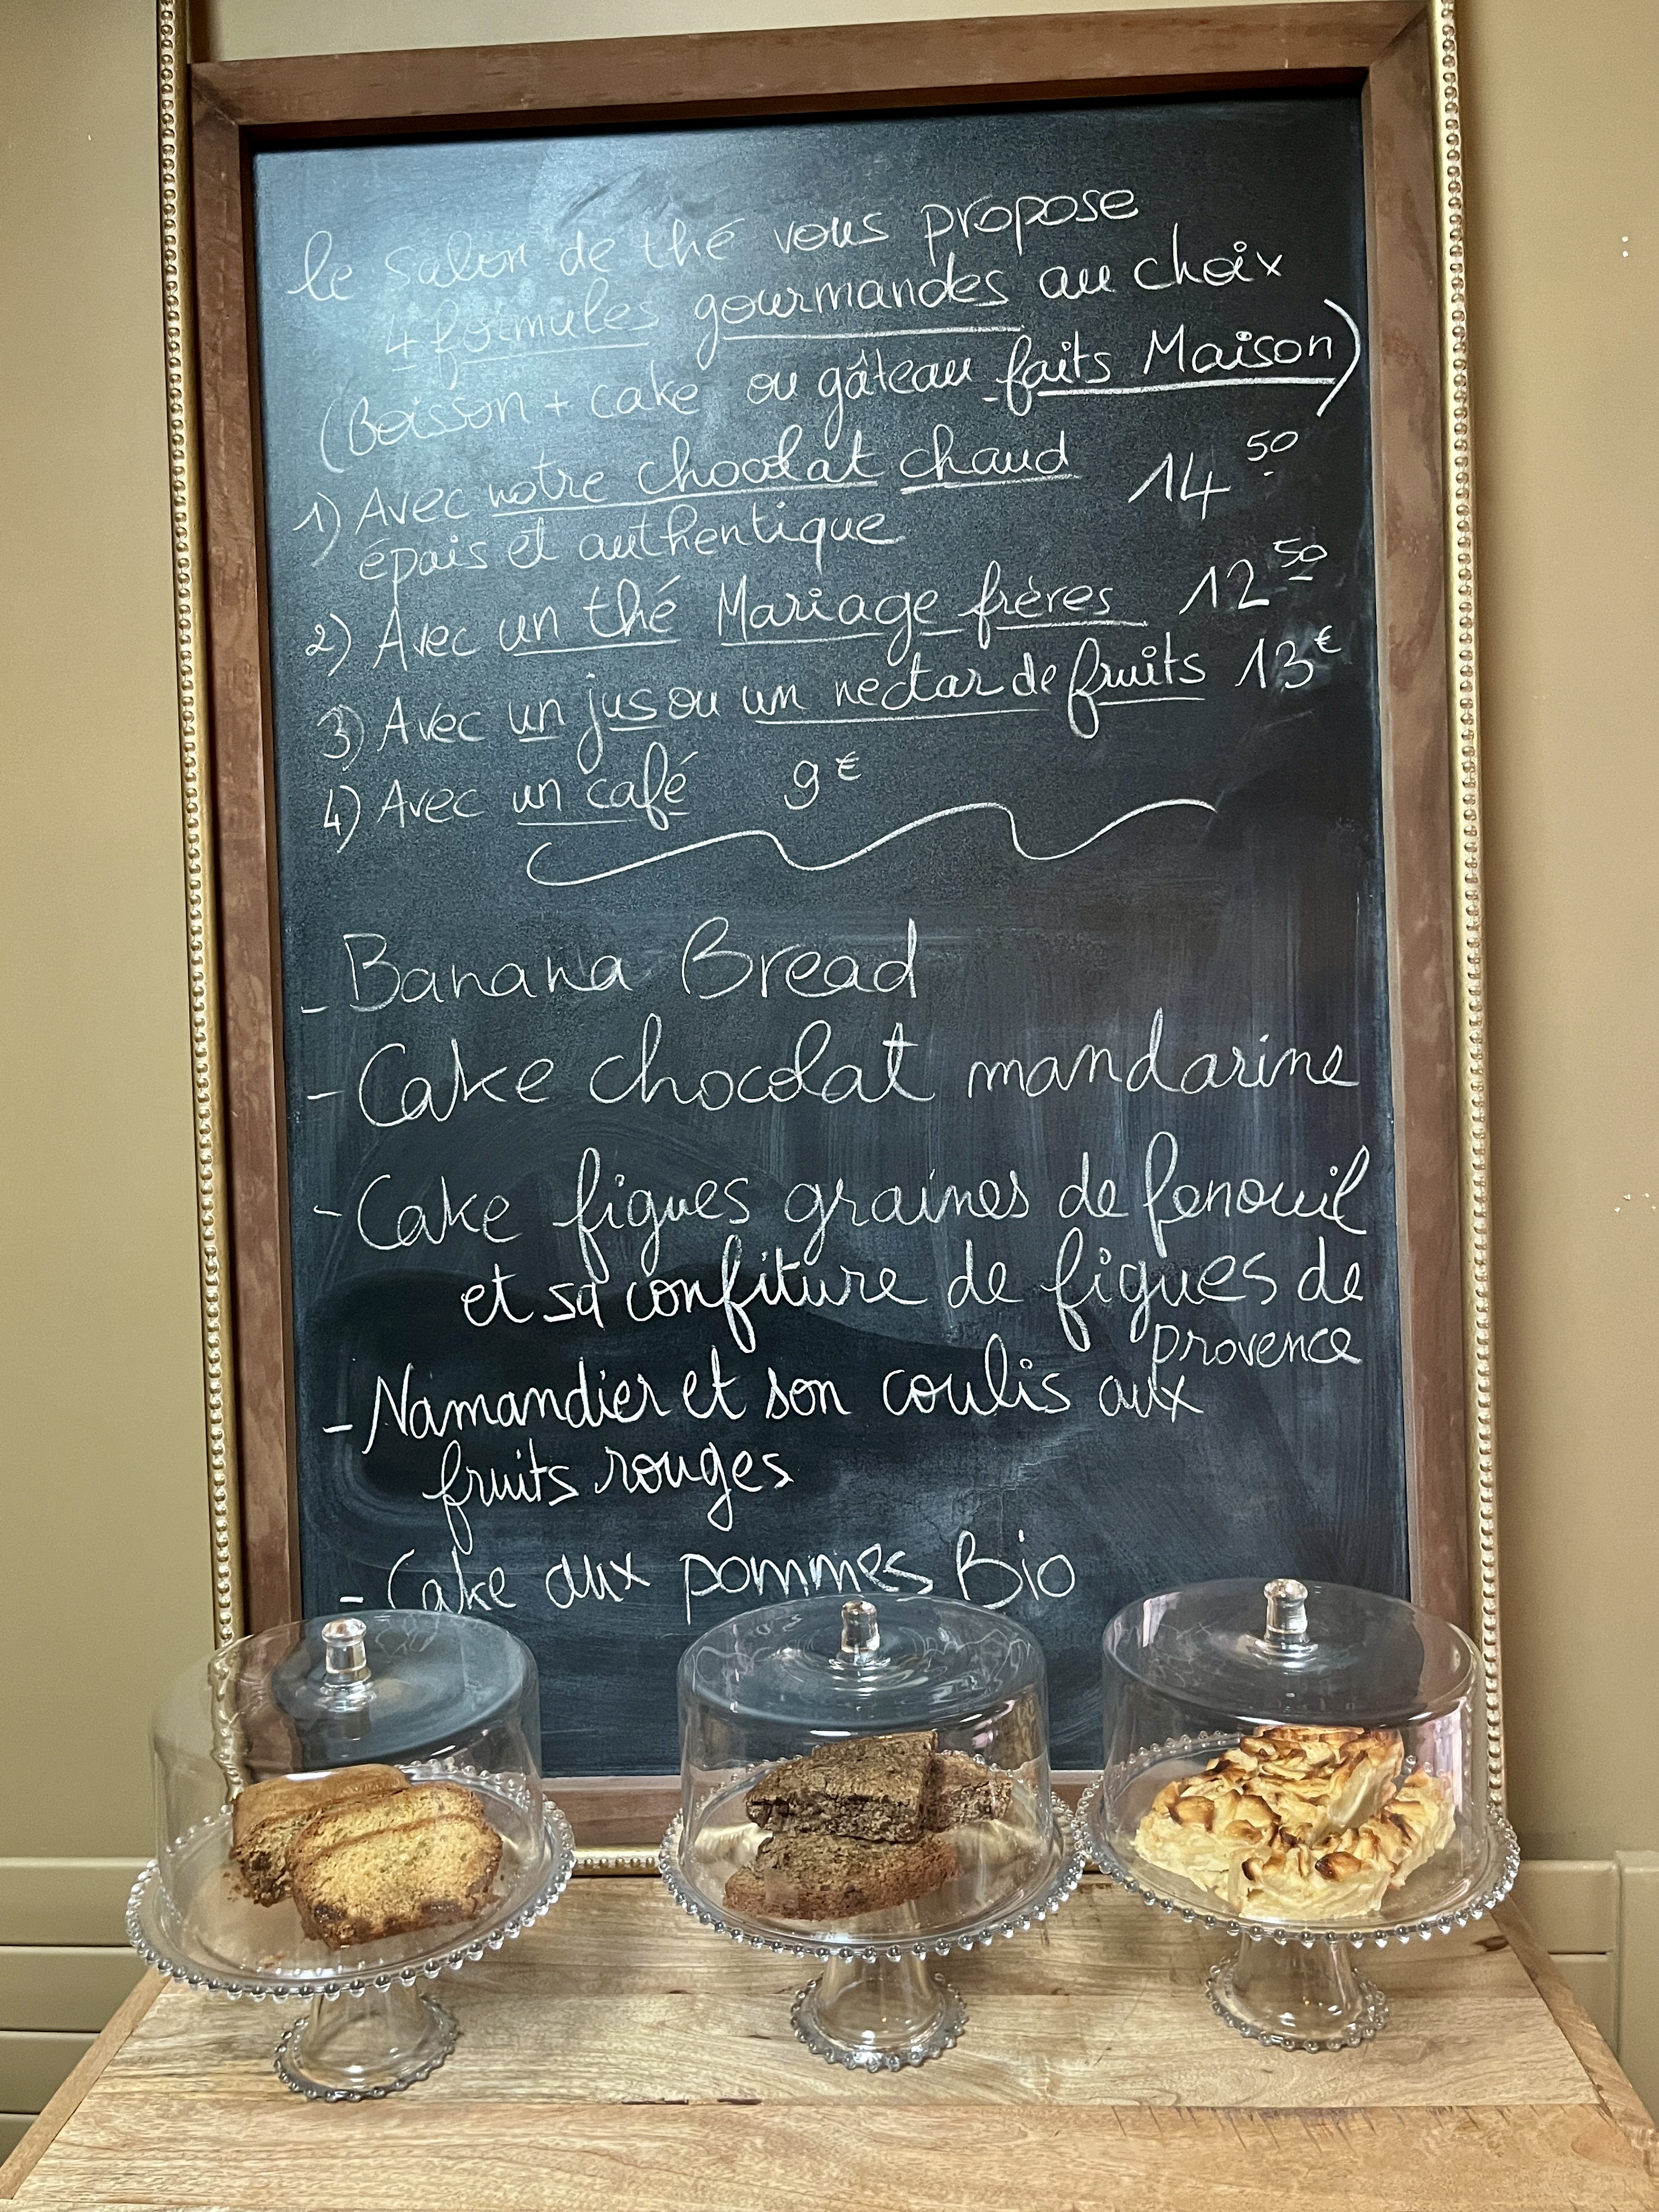 le salon de thé vous propose
4 formules gourmandes au choix
(Boisson + cake ou gâteau faits Maison)
1) Avec notre chocolat chaud 14 50
épais et authentique
2) Avec un thé Mariage frères 12 50
3) Avec un jus ou un nectar de fruits 13€
4) Avec un café 9€
- Banana Bread
- Cake chocolat mandarine
- Cake figues graines de fenouil
et sa confiture de figues de
provence
- Namandier et son coulis aux
fruits rouges
- Cake aux pommes Bio